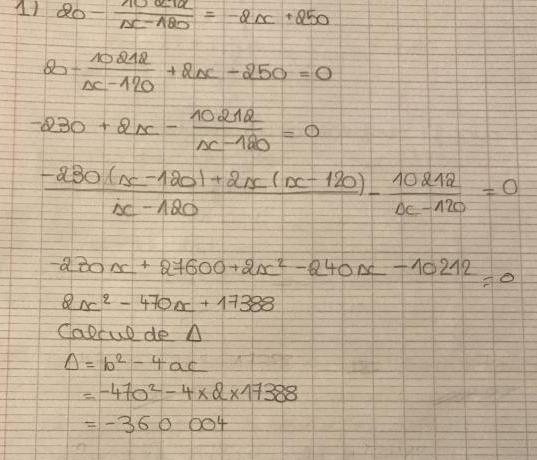 1) 20 - 10212/(x-120) = -2x + 250
20 - 10212/(x-120) + 2x - 250 = 0
-230 + 2x - 10212/(x-120) = 0
(-230(x-120) + 2x(x-120))/(x-120) - 10212/(x-120) = 0
-230x + 27600 + 2x² - 240x - 10212 = 0
2x² - 470x + 17388
Calcul de Δ
Δ = b² - 4ac
= -470² - 4×2×17388
= -360 004